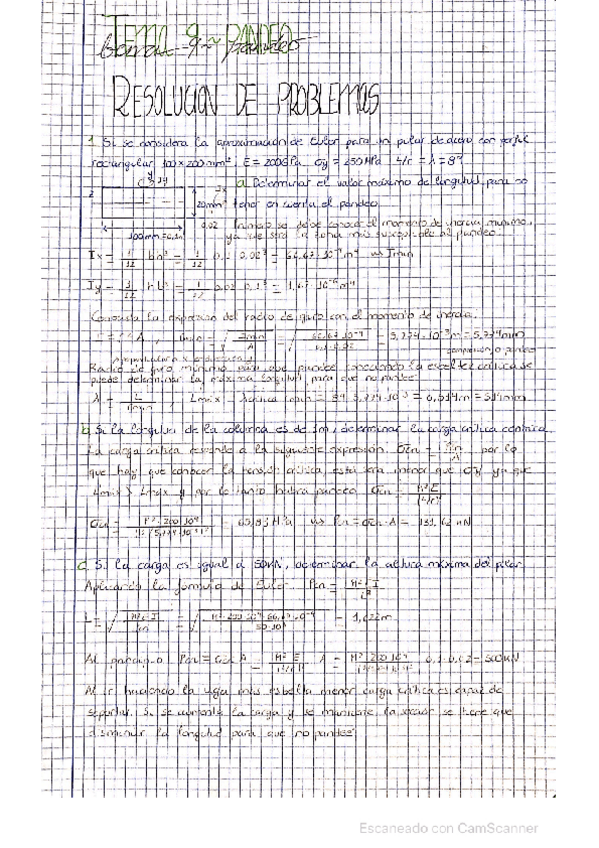 TEMA 9 ~ PANDEO
tema 9 ~ pandeo
RESOLUCION DE PROBLEMAS
1. Si se considera la aproximación de Euler para un pilar de acero con perfil
rectangular 100x200mm², E = 200GPa σy = 250MPa L/r = λ = 89
a. Determinar el valor máximo de longitud, para no
20mm tener en cuenta el pandeo.
0,02 Primero se debe conocer el momento de inercia mínimo,
100mm = 0,1m ya que será la zona más susceptible al pandeo.
Ix = 1/12 b h³ = 1/12 0,1 0,02³ = 66,67·10⁻⁹ m⁴ Imin
Iy = 1/12 h b³ = 1/12 0,02 0,1³ = 1,67·10⁻⁶ m⁴
Conocida la expresión del radio de giro con el momento de inercia.
= 5,774·10⁻³ m = 5,774mm
Radio de giro mínimo para que pandee, conociendo la esbeltez crítica se
puede determinar la máxima longitud para que no pandee.
λ = L/rmin , Lmax = λcritica rmin = 89 5,774·10⁻³ = 0,514m = 514mm
b. Si la longitud de la columna es de 1m, determinar la carga crítica céntrica
La carga crítica responde a la siguiente expresión. σcr = Pcr/A por lo
que hay que conocer la tensión crítica, esta será menor que σy ya que
L > Lmax y por lo tanto habrá pandeo σcr = π²E/(L/r)²
σcr = = 65,81 MPa Pcr = σcr · A = 131,62 kN
c. Si la carga es igual a 50kN, determinar la altura máxima del pilar
Aplicando la fórmula de Euler. Pcr = π² E I/L²
L = = 1,622m
Al Pcr = σcr A = A = 0,1·0,02 = 500kN
Al ir haciendo la viga más esbelta menor carga crítica es capaz de
soportar. Si se aumenta la carga y se mantiene la sección se tiene que
disminuir la longitud para que no pandee.
Escaneado con CamScanner